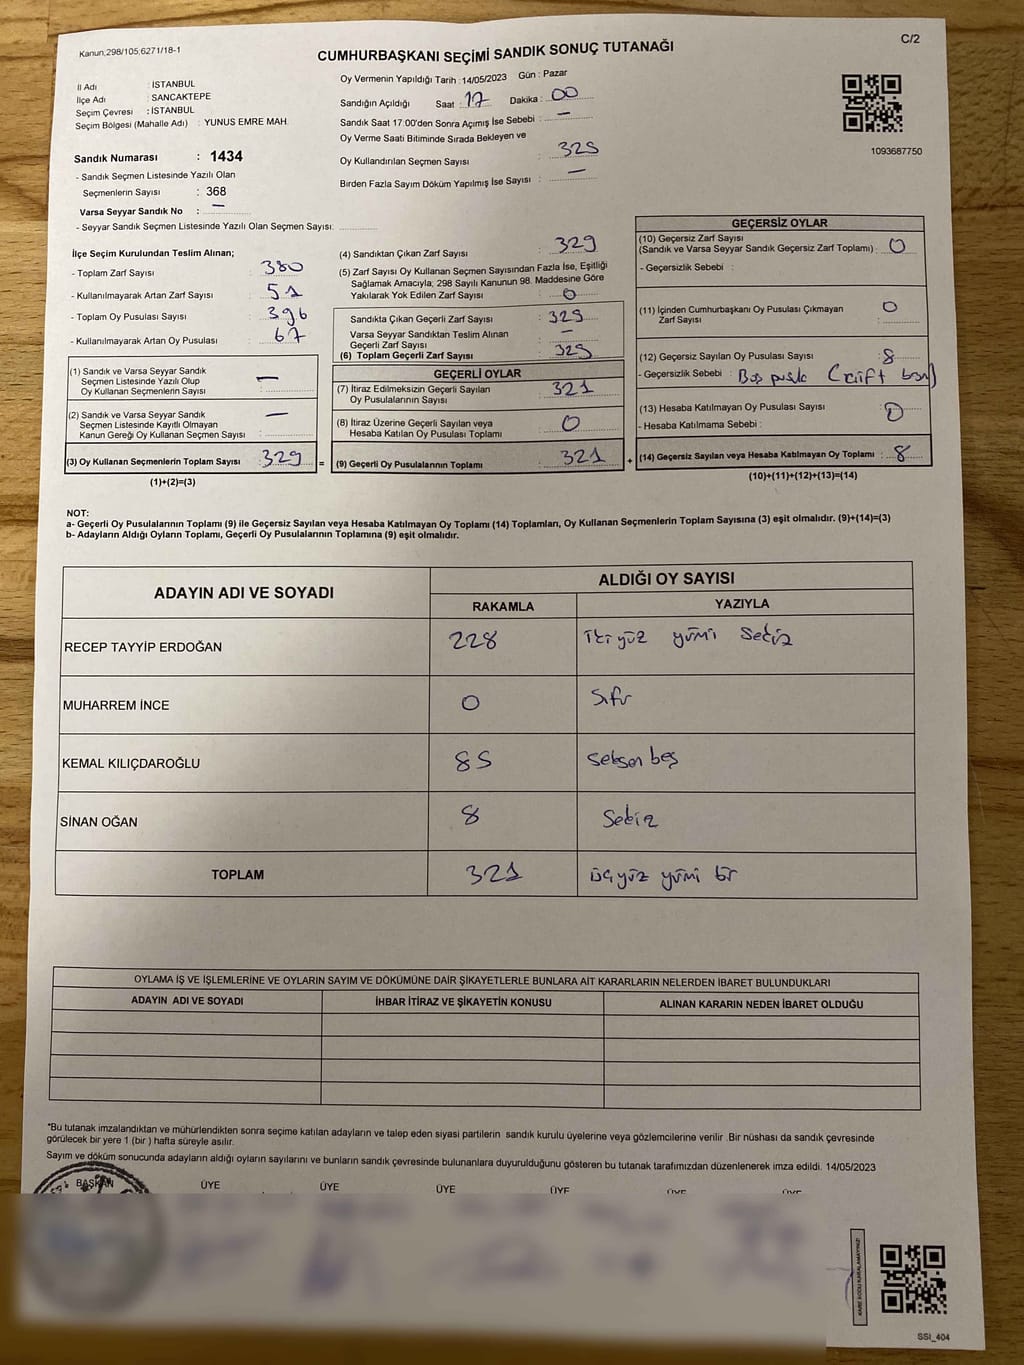 Kanun,298/105,6271/18-1
C/2
CUMHURBAŞKANI SEÇİMİ SANDIK SONUÇ TUTANAĞI
İl Adı : İSTANBUL
İlçe Adı : SANCAKTEPE
Seçim Çevresi : İSTANBUL
Seçim Bölgesi (Mahalle Adı) : YUNUS EMRE MAH.
Sandık Numarası : 1434
- Sandık Seçmen Listesinde Yazılı Olan
Seçmenlerin Sayısı : 368
Varsa Seyyar Sandık No : —
- Seyyar Sandık Seçmen Listesinde Yazılı Olan Seçmen Sayısı:
Oy Vermenin Yapıldığı Tarih : 14/05/2023 Gün : Pazar
Sandığın Açıldığı Saat : 17 Dakika : 00
Sandık Saat 17:00'den Sonra Açımış İse Sebebi : —
Oy Verme Saati Bitiminde Sırada Bekleyen ve
Oy Kullandırılan Seçmen Sayısı : 329
Birden Fazla Sayım Döküm Yapılmış İse Sayısı : —
1093687750
İlçe Seçim Kurulundan Teslim Alınan;
- Toplam Zarf Sayısı : 380
- Kullanılmayarak Artan Zarf Sayısı : 51
- Toplam Oy Pusulası Sayısı : 396
- Kullanılmayarak Artan Oy Pusulası : 67
(1) Sandık ve Varsa Seyyar Sandık
Seçmen Listesinde Yazılı Olup
Oy Kullanan Seçmenlerin Sayısı : —
(2) Sandık ve Varsa Seyyar Sandık
Seçmen Listesinde Kayıtlı Olmayan
Kanun Gereği Oy Kullanan Seçmen Sayısı : —
(3) Oy Kullanan Seçmenlerin Toplam Sayısı : 329 =
(1)+(2)=(3)
(4) Sandıktan Çıkan Zarf Sayısı : 329
(5) Zarf Sayısı Oy Kullanan Seçmen Sayısından Fazla İse, Eşitliği
Sağlamak Amacıyla; 298 Sayılı Kanunun 98. Maddesine Göre
Yakılarak Yok Edilen Zarf Sayısı : 0
Sandıkta Çıkan Geçerli Zarf Sayısı : 329
Varsa Seyyar Sandıktan Teslim Alınan
Geçerli Zarf Sayısı : —
(6) Toplam Geçerli Zarf Sayısı : 329
GEÇERLİ OYLAR
(7) İtiraz Edilmeksizin Geçerli Sayılan
Oy Pusulalarının Sayısı : 321
(8) İtiraz Üzerine Geçerli Sayılan veya
Hesaba Katılan Oy Pusulası Toplamı : 0
(9) Geçerli Oy Pusulalarının Toplamı : 321 +
GEÇERSİZ OYLAR
(10) Geçersiz Zarf Sayısı
(Sandık ve Varsa Seyyar Sandık Geçersiz Zarf Toplamı) : 0
- Geçersizlik Sebebi :
(11) İçinden Cumhurbaşkanı Oy Pusulası Çıkmayan
Zarf Sayısı : 0
(12) Geçersiz Sayılan Oy Pusulası Sayısı : 8
- Geçersizlik Sebebi : Boş pusula (çift bası)
(13) Hesaba Katılmayan Oy Pusulası Sayısı : 0
- Hesaba Katılmama Sebebi :
(14) Geçersiz Sayılan veya Hesaba Katılmayan Oy Toplamı : 8
(10)+(11)+(12)+(13)=(14)
NOT:
a- Geçerli Oy Pusulalarının Toplamı (9) ile Geçersiz Sayılan veya Hesaba Katılmayan Oy Toplamı (14) Toplamları, Oy Kullanan Seçmenlerin Toplam Sayısına (3) eşit olmalıdır. (9)+(14)=(3)
b- Adayların Aldığı Oyların Toplamı, Geçerli Oy Pusulalarının Toplamına (9) eşit olmalıdır.
ADAYIN ADI VE SOYADI
ALDIĞI OY SAYISI
RAKAMLA YAZIYLA
RECEP TAYYİP ERDOĞAN 228 İkiyüz yirmi Sekiz
MUHARREM İNCE 0 Sıfır
KEMAL KILIÇDAROĞLU 85 Seksen beş
SİNAN OĞAN 8 Sekiz
TOPLAM 321 üçyüz yirmi bir
OYLAMA İŞ VE İŞLEMLERİNE VE OYLARIN SAYIM VE DÖKÜMÜNE DAİR ŞİKAYETLERLE BUNLARA AİT KARARLARIN NELERDEN İBARET BULUNDUKLARI
ADAYIN ADI VE SOYADI İHBAR İTİRAZ VE ŞİKAYETİN KONUSU ALINAN KARARIN NEDEN İBARET OLDUĞU
"Bu tutanak imzalandıktan ve mühürlendikten sonra seçime katılan adayların ve talep eden siyasi partilerin sandık kurulu üyelerine veya gözlemcilerine verilir .Bir nüshası da sandık çevresinde
görülecek bir yere 1 (bir) hafta süreyle asılır.
Sayım ve döküm sonucunda adayların aldığı oyların sayılarını ve bunların sandık çevresinde bulunanlara duyurulduğunu gösteren bu tutanak tarafımızdan düzenlenerek imza edildi. 14/05/2023
BAŞKAN ÜYE ÜYE ÜYE ÜYE ÜYE ÜYE
KARE KODU KARALAMAYINIZ!
SSI_404